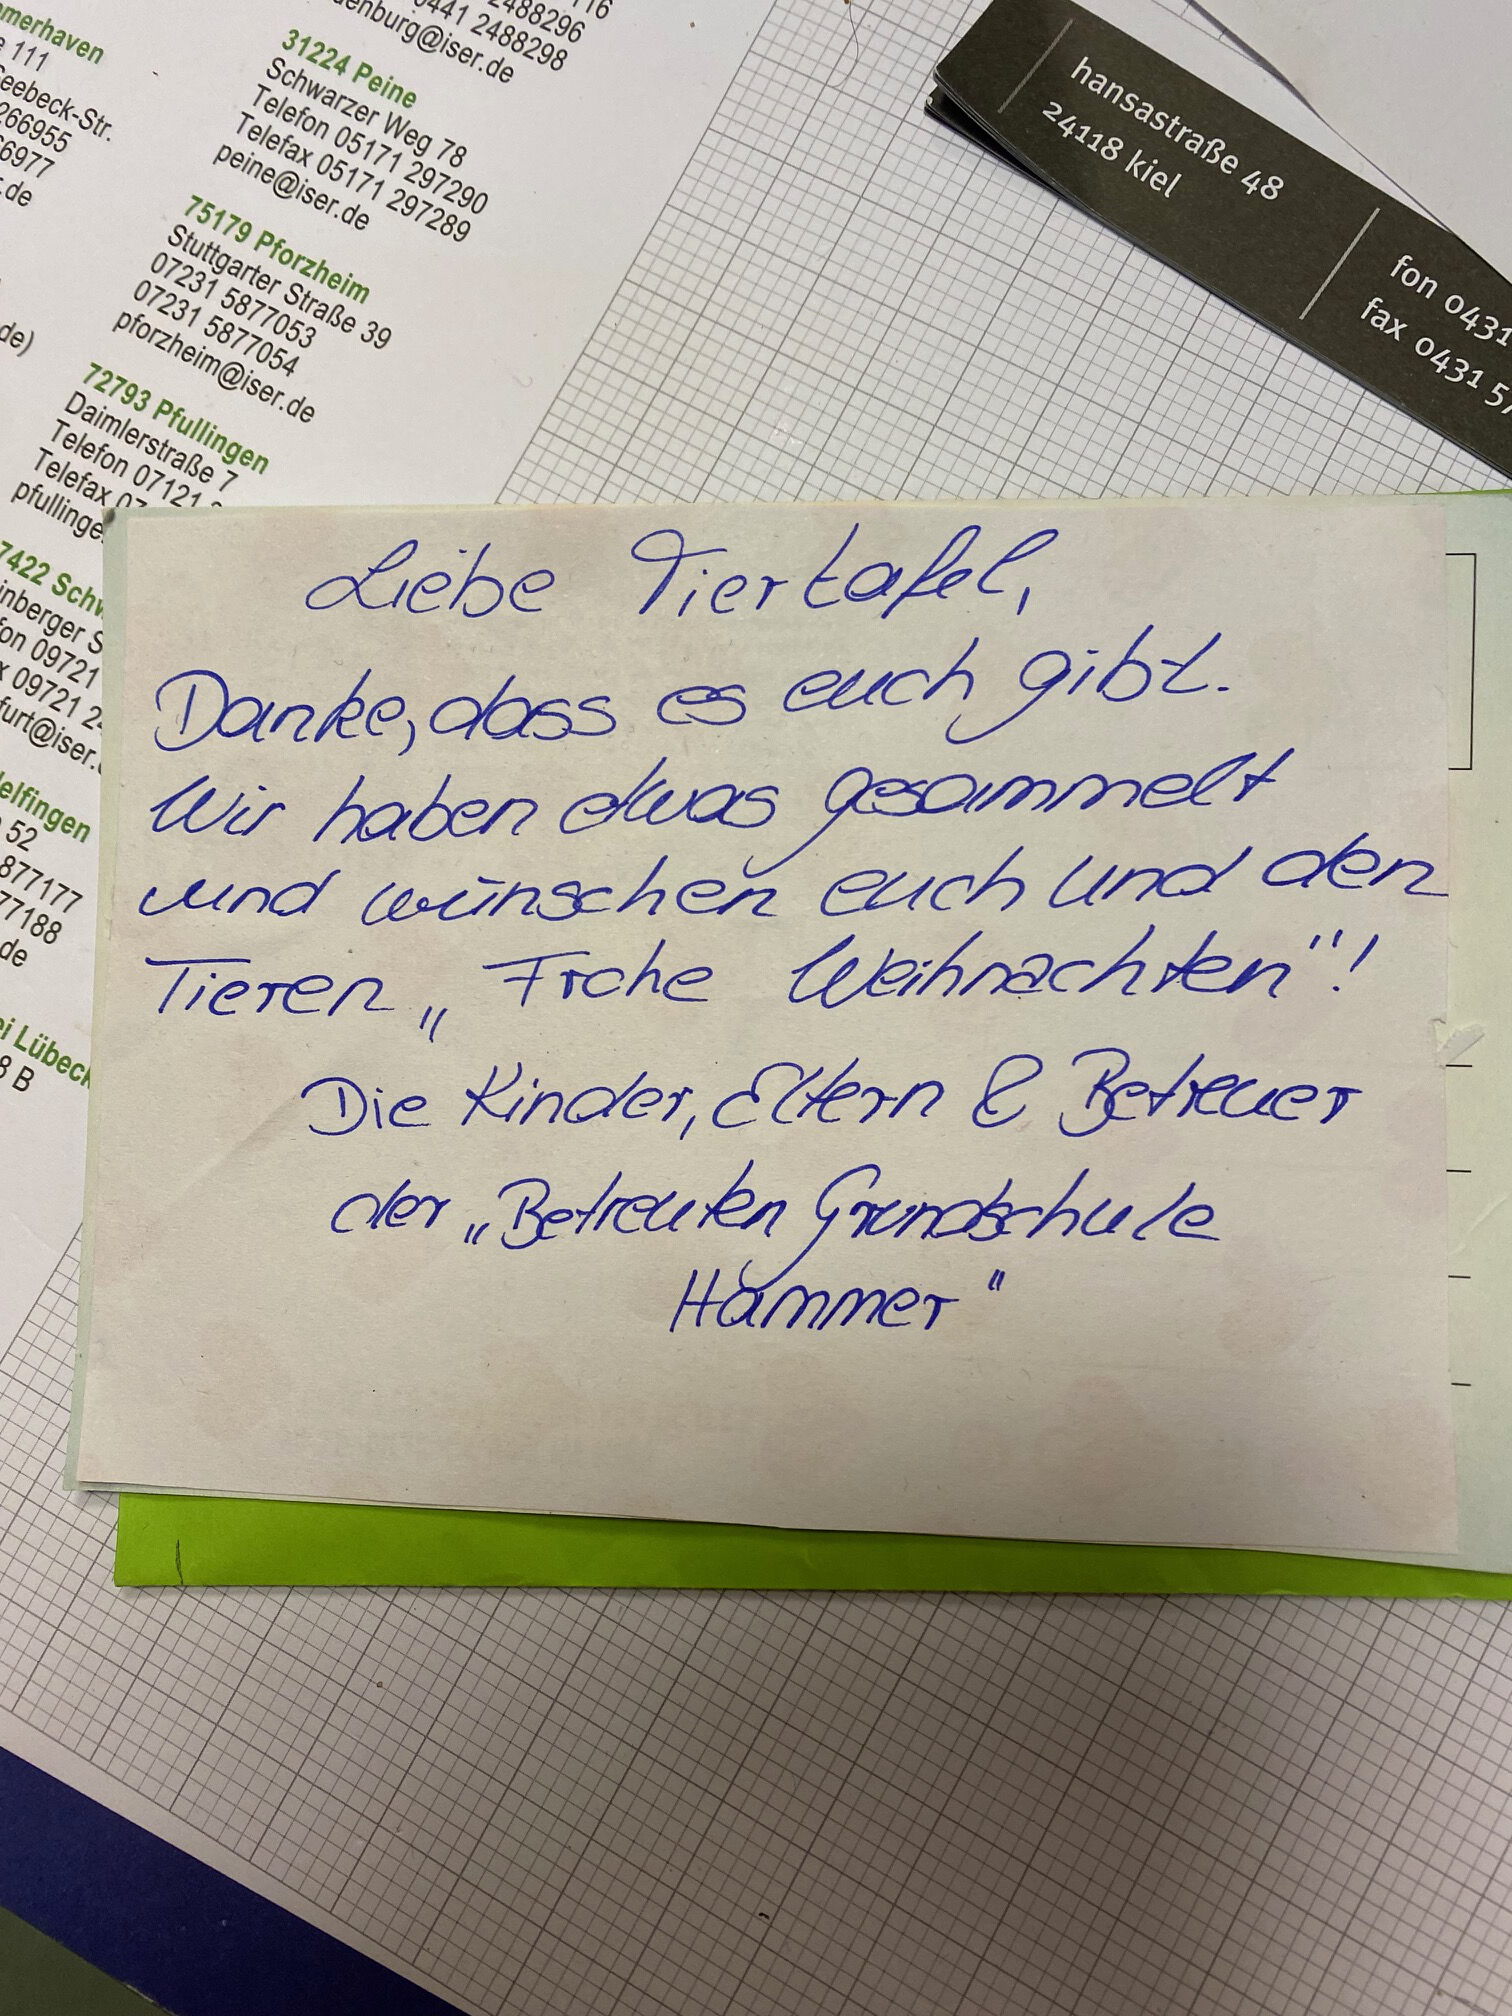 merhaven
111
eebeck-Str.
266955
6977
.de
116
2488296
0441 2488298
denburg@iser.de
31224 Peine
Schwarzer Weg 78
Telefon 05171 297290
Telefax 05171 297289
peine@iser.de
75179 Pforzheim
Stuttgarter Straße 39
07231 5877053
07231 5877054
pforzheim@iser.de
de)
72793 Pfullingen
Daimlerstraße 7
Telefon 07121
Telefax 07
pfullinge
7422 Schw
inberger S
fon 09721
x 09721 2
furt@iser.
elfingen
52
877177
77188
de
ei Lübeck
8 B
hansastraße 48
24118 kiel
fon 0431
fax 0431 57
Liebe Tiertafel,
Danke, dass es euch gibt.
Wir haben etwas gesammelt
und wünschen euch und den
Tieren „Frohe Weihnachten"!
Die Kinder, Eltern & Betreuer
der „Betreuten Grundschule
Hammer"